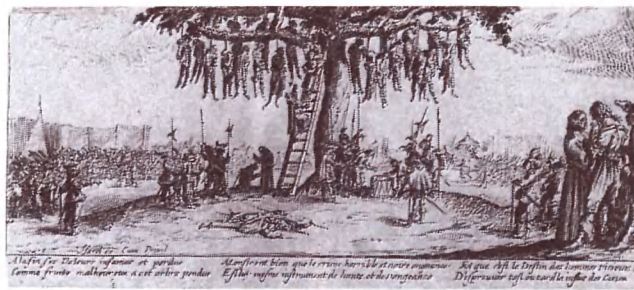 Cum Privil
A la fin ces Voleurs infames et perdus
Comme fruits malheureux a cet arbre pendus
Monstrent bien que le crime horrible et noire engeance
Est luy mesme instrument de honte et de vengeance
Et que cest le Destin des hommes vicieux
Desprouver tost ou tard la justice des Cieux